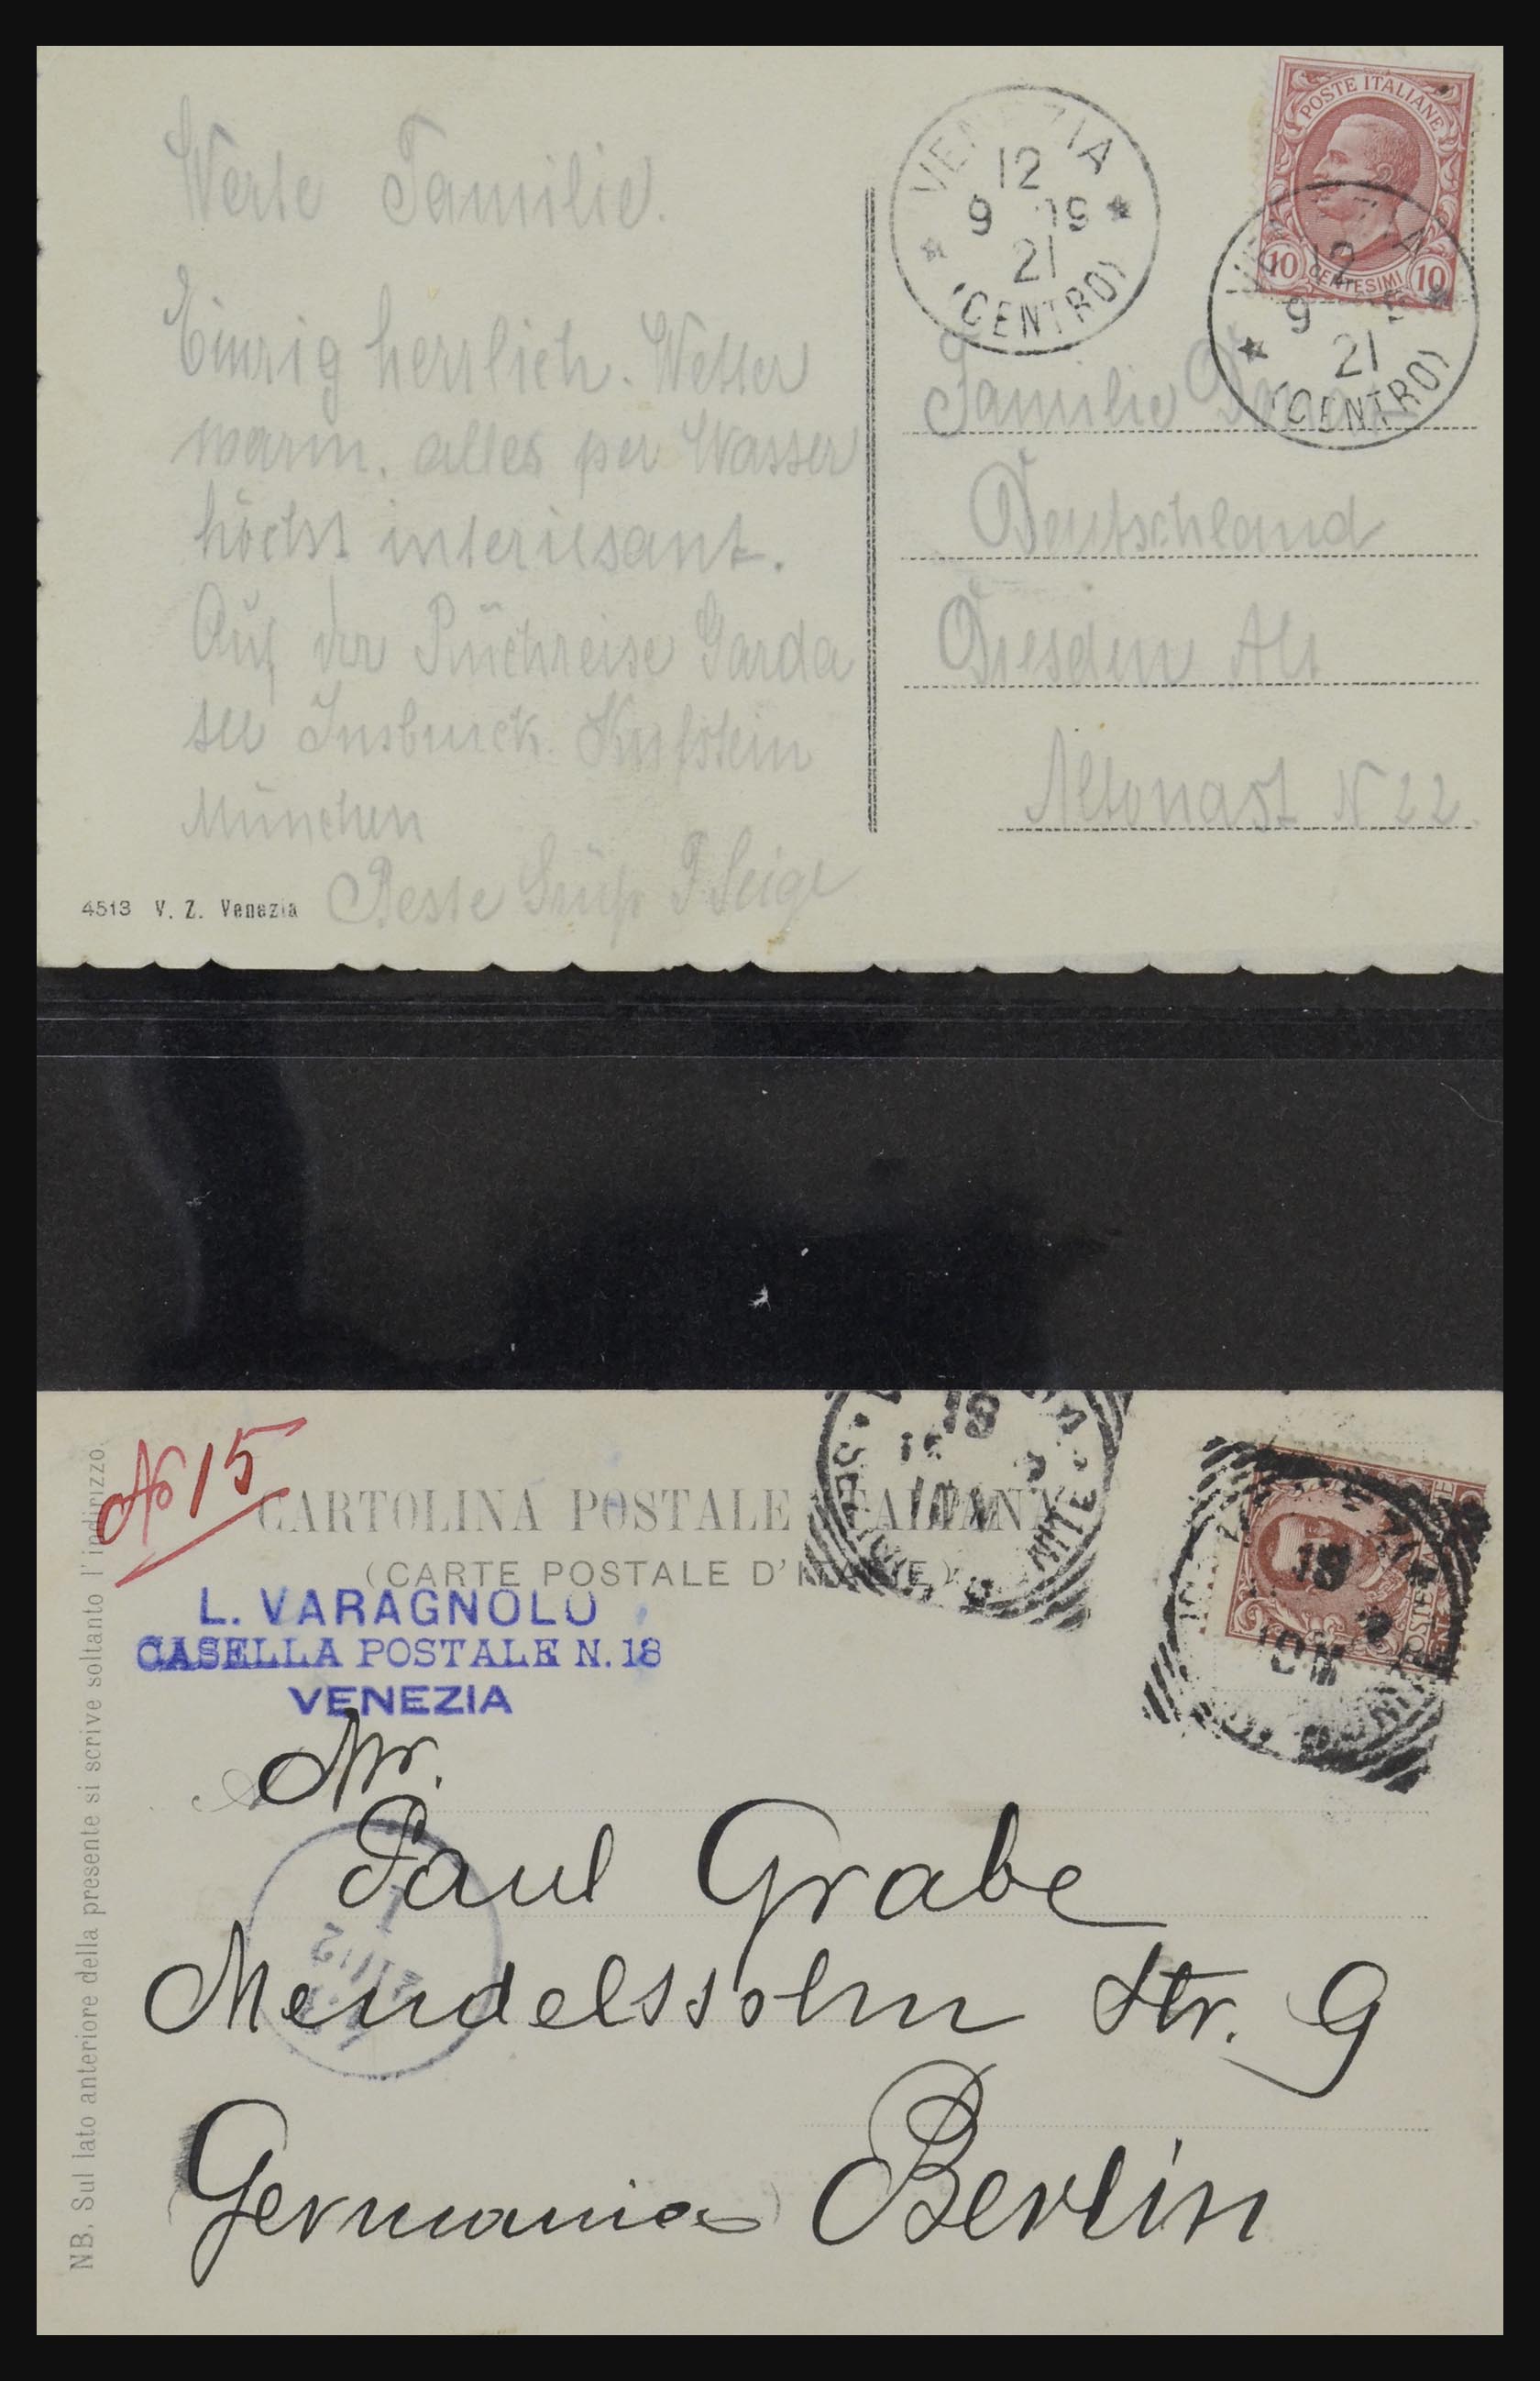 Werte Familie.
Einzig herrlich. Wetter
warm. alles per Wasser
höchst interiesant.
Auf der Rückreise Garda
see Insbruck. Kufstein
München
Beste Grüße
4513 V. Z. Venezia
VENEZIA
12
9 19
21
(CENTRO)
POSTE ITALIANE
10 CENTESIMI 10
12
9
21
(CENTRO)
Familie
Deutschland
Dresden Alt
Altonast N 22
No 15
CARTOLINA POSTALE ITALIANA
(CARTE POSTALE D'ITALIE)
L. VARAGNOLO
CASELLA POSTALE N. 18
VENEZIA
18
10M
18
10M
POSTE
Mr.
Paul Grabe
Mendelssohn Str. 9
Germania Berlin
NB. Sul lato anteriore della presente si scrive soltanto l'indirizzo